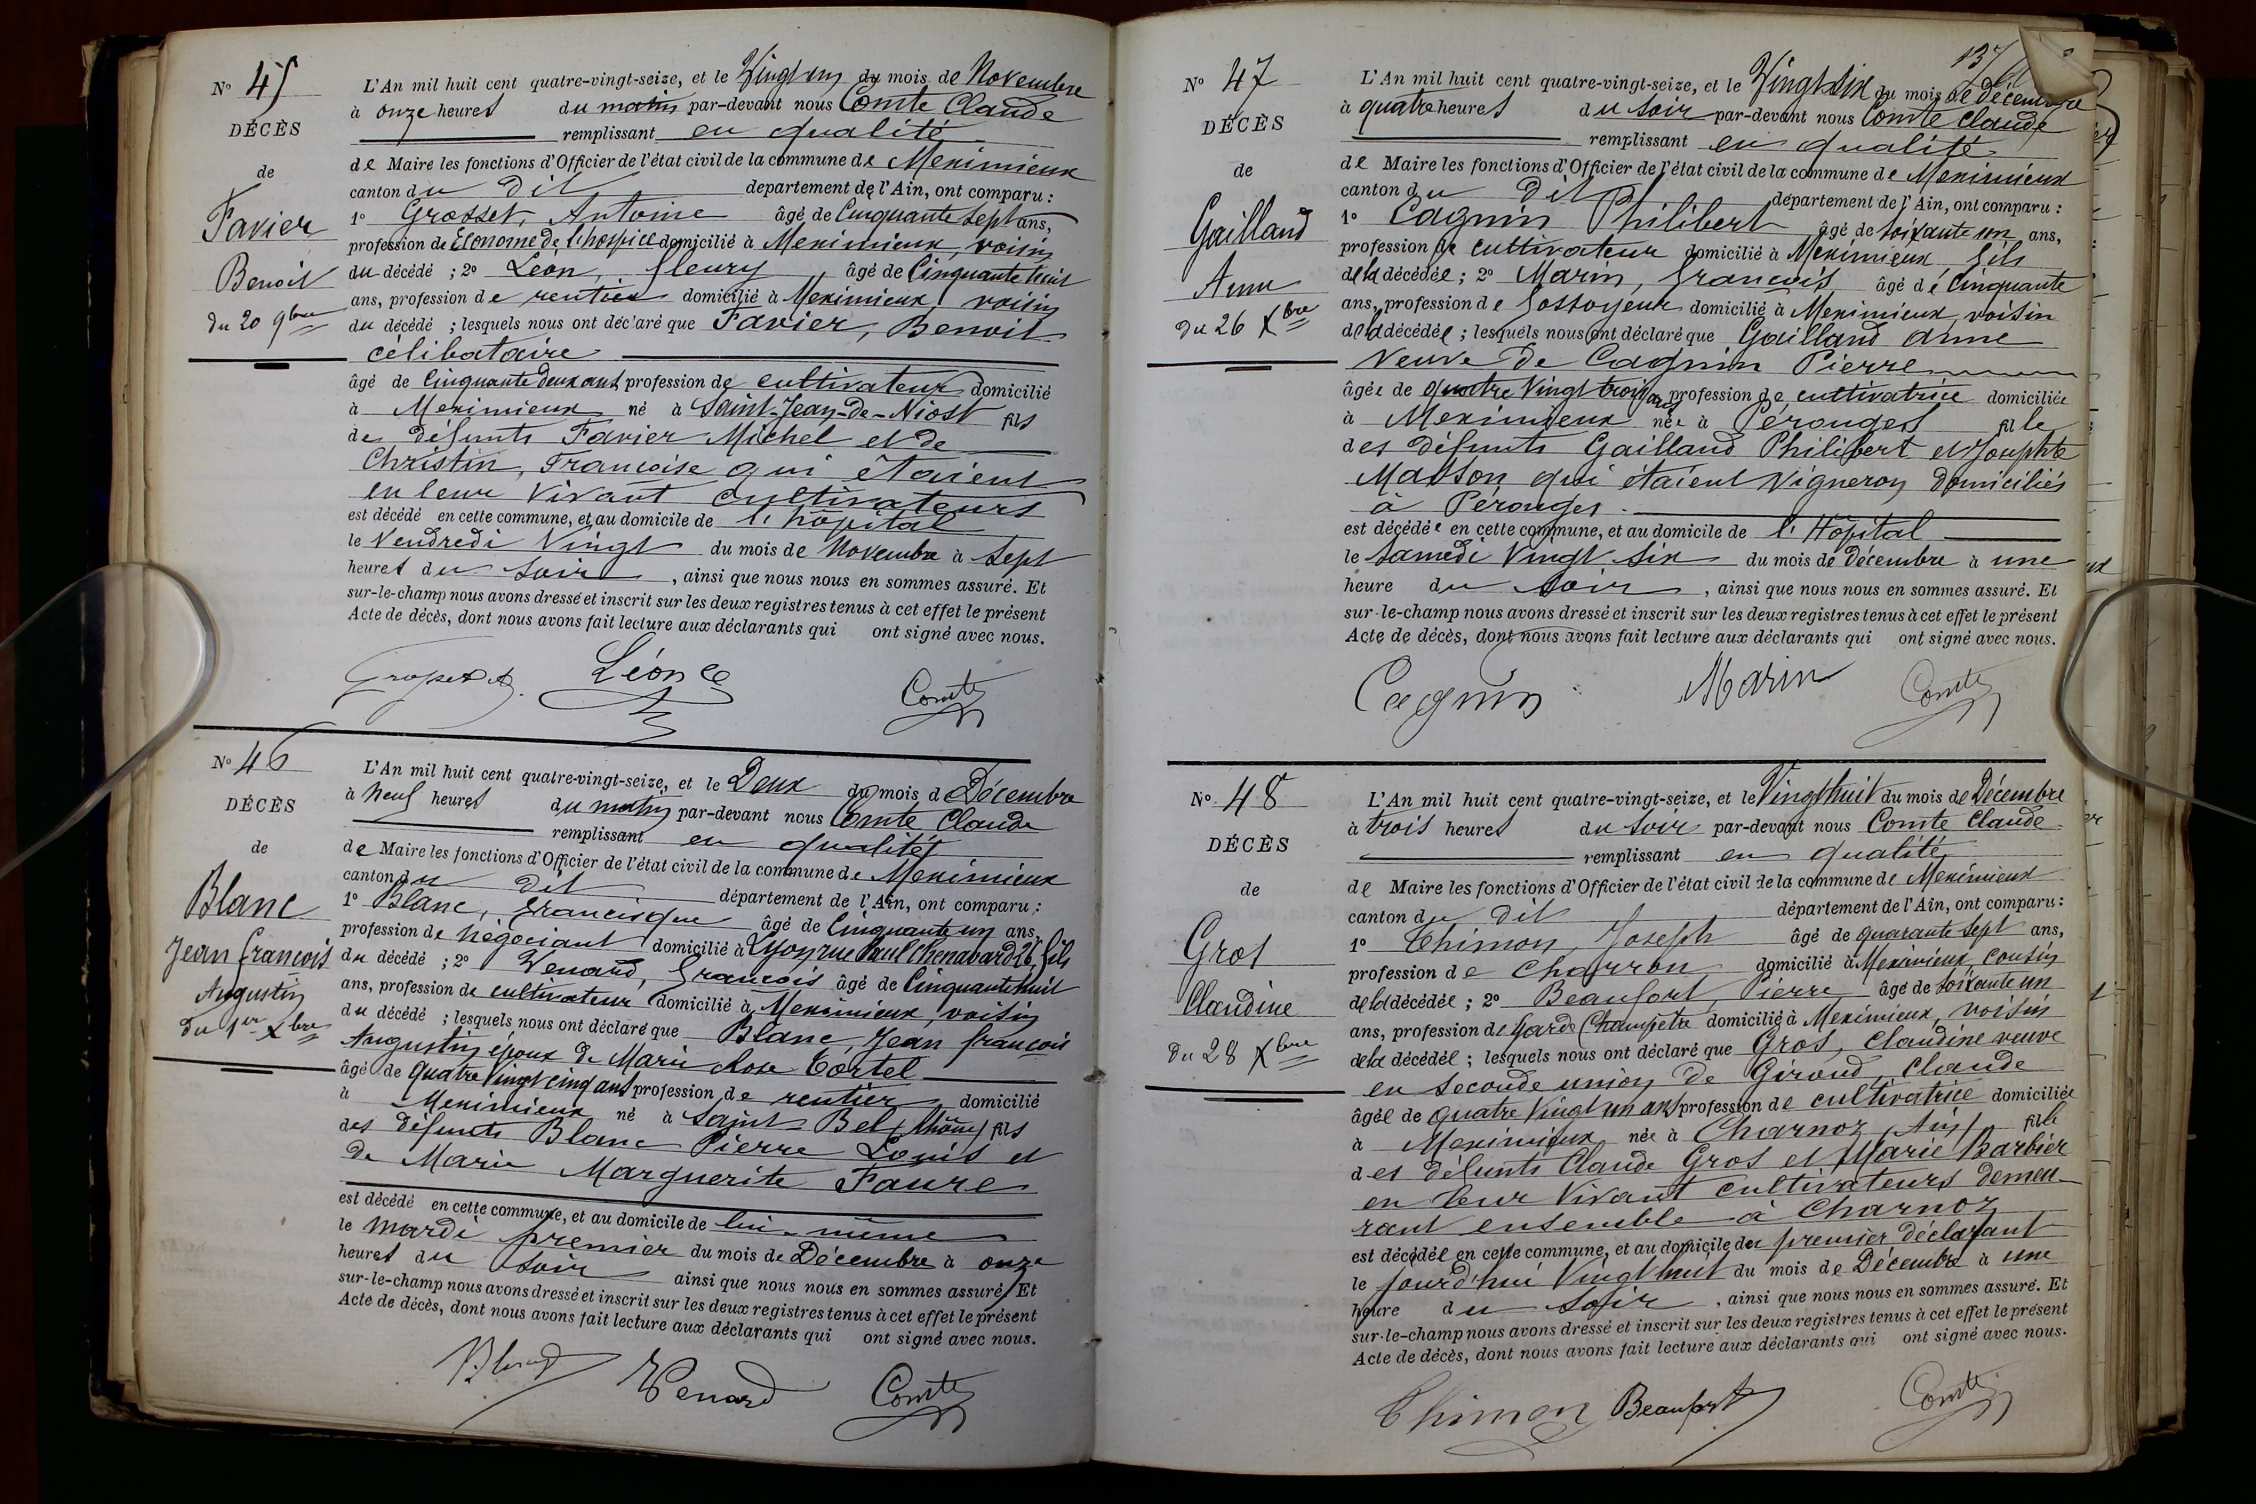 N° 45
DÉCÈS
de
Favier
Benoit
du 20 9bre
L'An mil huit cent quatre-vingt-seize, et le Vingt un du mois de Novembre
à onze heures du matin par-devant nous Comte Claude
remplissant en qualité
de Maire les fonctions d'Officier de l'état civil de la commune de Meximieux
canton du dit département de l'Ain, ont comparu :
1° Grosset, Antoine âgé de Cinquante sept ans,
profession de Econome de l'hospice domicilié à Meximieux, voisin
du décédé ; 2° Léon, fleury âgé de Cinquante huit
ans, profession de rentier domicilié à Meximieux, voisin
du décédé ; lesquels nous ont déclaré que Favier, Benoit
célibataire
âgé de Cinquante deux ans profession de cultivateur domicilié
à Meximieux né à Saint-Jean-de-Niost fils
de défunts Favier Michel et de
Christin, Françoise qui êtaient
en leur vivant cultivateurs
est décédé en cette commune, et au domicile de l'hôpital
le Vendredi Vingt du mois de Novembre à sept
heures du soir, ainsi que nous nous en sommes assuré. Et
sur-le-champ nous avons dressé et inscrit sur les deux registres tenus à cet effet le présent
Acte de décès, dont nous avons fait lecture aux déclarants qui ont signé avec nous.
Grosset A. Léon Comte
N° 46
DÉCÈS
de
Blanc
Jean françois
Augustin
du 1er Xbre
L'An mil huit cent quatre-vingt-seize, et le Deux du mois d Décembre
à neuf heures du matin par-devant nous Comte Claude
remplissant en qualité
de Maire les fonctions d'Officier de l'état civil de la commune de Meximieux
canton du dit département de l'Ain, ont comparu :
1° Blanc, Francisque âgé de Cinquante un ans,
profession de négociant domicilié à Lyon rue Paul Chenavard 26, fils
du décédé ; 2° Venard, François âgé de Cinquante huit
ans, profession de cultivateur domicilié à Meximieux, voisin
du décédé ; lesquels nous ont déclaré que Blanc, Jean françois
Augustin époux de Marie Rose Tortel
âgé de Quatre Vingt cinq ans profession de rentier domicilié
à Meximieux né à Saint Bel (Rhône) fils
des défunts Blanc Pierre Louis et
de Marie Marguerite Faure
est décédé en cette commune, et au domicile de lui-même
le mardi premier du mois de Décembre à onze
heures du soir ainsi que nous nous en sommes assuré, Et
sur-le-champ nous avons dressé et inscrit sur les deux registres tenus à cet effet le présent
Acte de décès, dont nous avons fait lecture aux déclarants qui ont signé avec nous.
Blanc Venard Comte
137
N° 47
DÉCÈS
de
Gailland
Anne
du 26 Xbre
L'An mil huit cent quatre-vingt-seize, et le Vingt six du mois de Décembre
à quatre heures du soir par-devant nous Comte Claude
remplissant en qualité
de Maire les fonctions d'Officier de l'état civil de la commune de Meximieux
canton du dit département de l'Ain, ont comparu :
1° Cagnin Philibert âgé de soixante un ans,
profession de cultivateur domicilié à Meximieux fils
de la décédée ; 2° Marin, François âgé de Cinquante
ans, profession de fossoyeur domicilié à Meximieux, voisin
de la décédée ; lesquels nous ont déclaré que Gailland anne
veuve de Cagnin Pierre
âgée de quatre vingt trois ans profession de cultivatrice domiciliée
à Meximieux née à Pérouges fille
des défunts Gailland Philibert et Josephte
Masson qui étaient vigneron domiciliés
à Pérouges
est décédée en cette commune, et au domicile de l'Hôpital
le samedi vingt six du mois de Décembre à une
heure du soir, ainsi que nous nous en sommes assuré. Et
sur-le-champ nous avons dressé et inscrit sur les deux registres tenus à cet effet le présent
Acte de décès, dont nous avons fait lecture aux déclarants qui ont signé avec nous.
Cagnin Marin Comte
N° 48
DÉCÈS
de
Gros
Claudine
du 28 Xbre
L'An mil huit cent quatre-vingt-seize, et le Vingt huit du mois de Décembre
à trois heures du soir par-devant nous Comte Claude
remplissant en qualité
de Maire les fonctions d'Officier de l'état civil de la commune de Meximieux
canton du dit département de l'Ain, ont comparu :
1° Thimon, Joseph âgé de quarante sept ans,
profession de Charron domicilié à Meximieux, cousin
de la décédée ; 2° Beaufort, Pierre âgé de soixante un
ans, profession de Garde Champetre domicilié à Meximieux, voisin
de la décédée ; lesquels nous ont déclaré que Gros, Claudine veuve
en seconde union de Giroud, Claude
âgée de quatre vingt un ans profession de cultivatrice domiciliée
à Meximieux née à Charnoz (Ain) fille
des défunts Claude Gros et Marie Barbier
en leur vivant cultivateurs demeu-
rant ensemble à Charnoz
est décédée en cette commune, et au domicile du premier déclarant
le jourd'hui vingt huit du mois de Décembre à une
heure du soir, ainsi que nous nous en sommes assuré. Et
sur-le-champ nous avons dressé et inscrit sur les deux registres tenus à cet effet le présent
Acte de décès, dont nous avons fait lecture aux déclarants qui ont signé avec nous.
Thimon Beaufort Comte